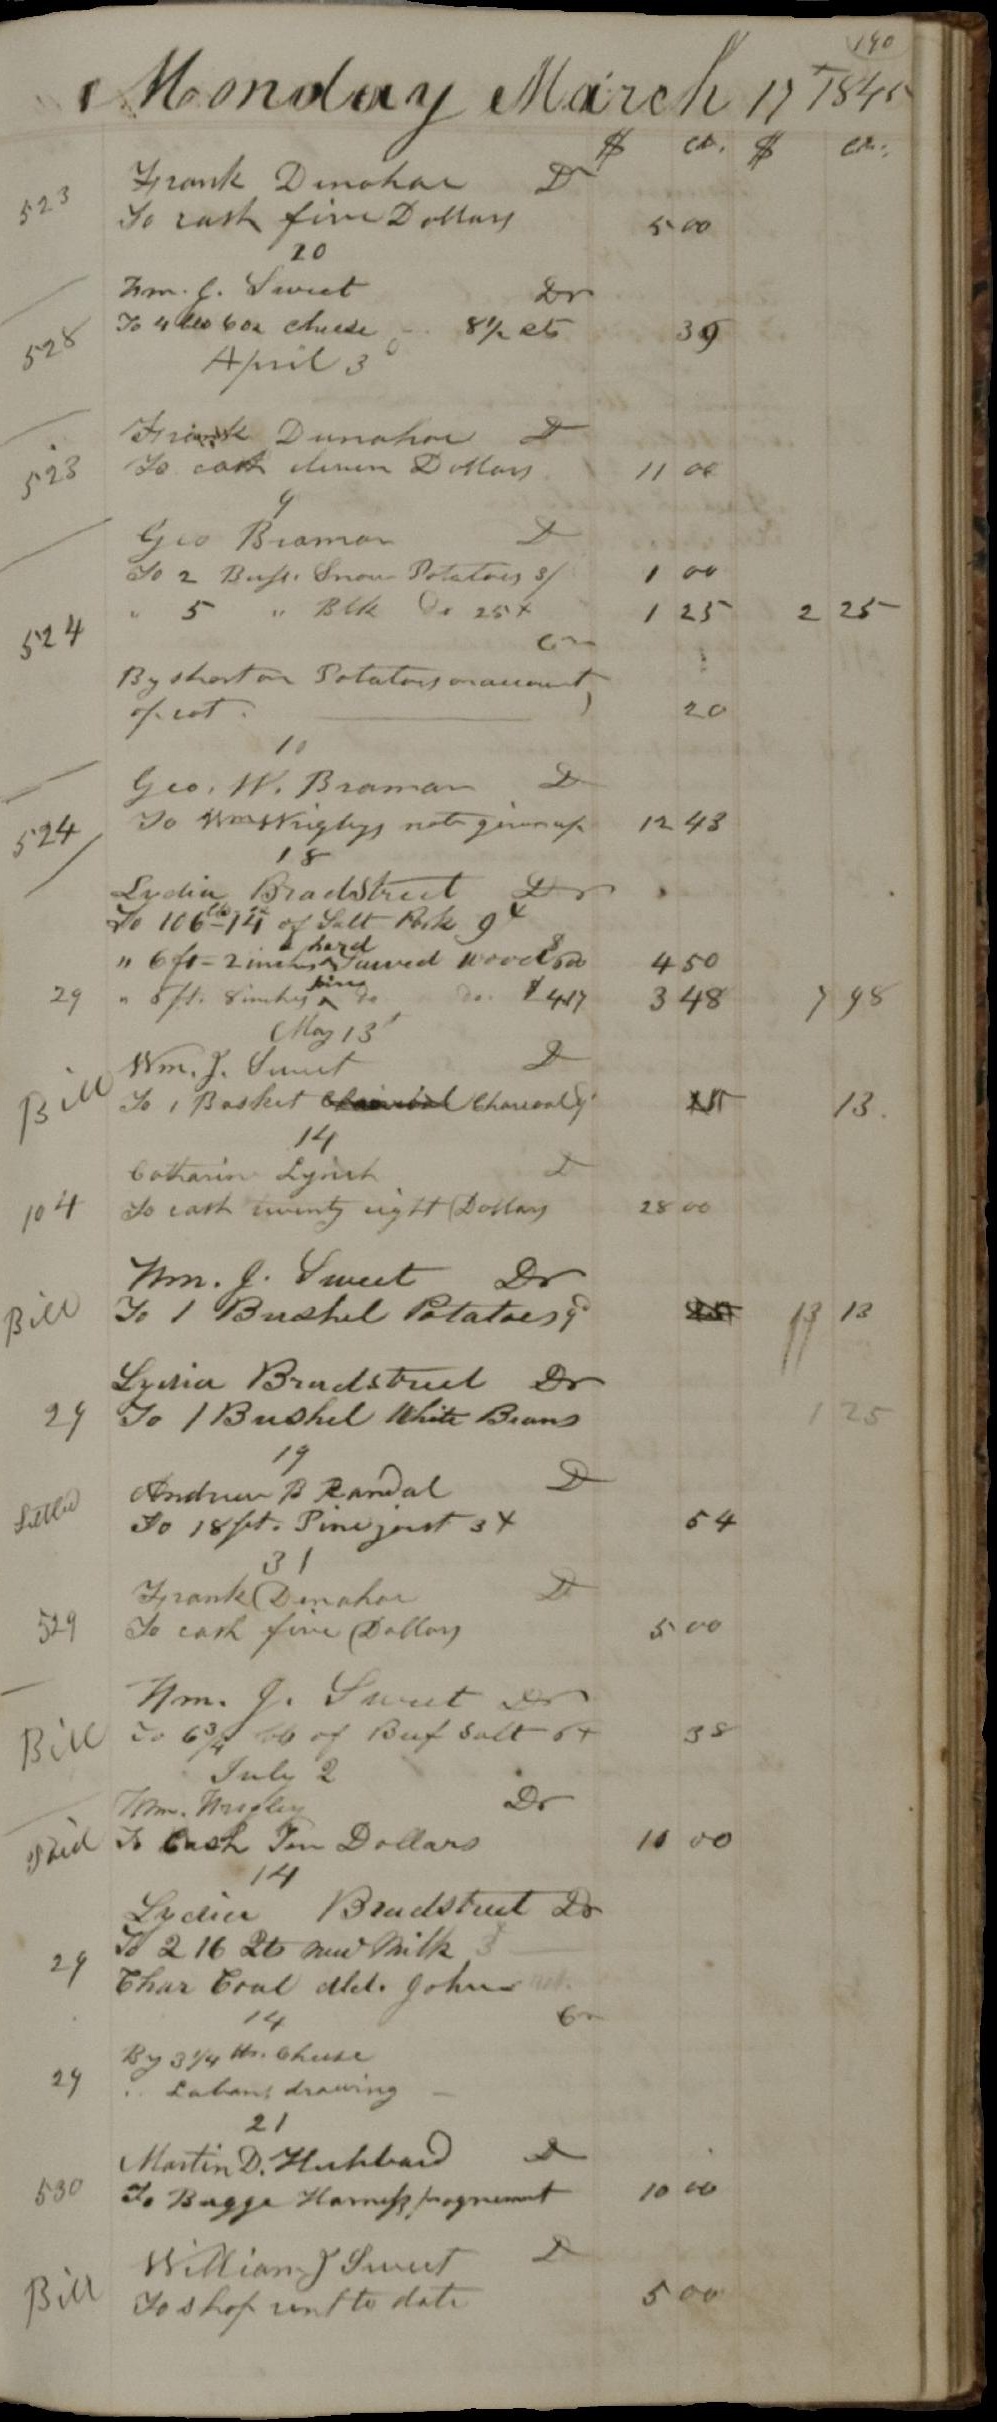 190
Monday March 17th 1845
$ cts. $ cts.
523 Frank Donahoe Dr
To cash five Dollars 5 00
20
Wm. J. Sweet Dr
528 To 4 lbs 6 oz cheese 8½ cts 39
April 3d
Frank Dunahoe Dr
523 To cash eleven Dollars 11 00
9
Geo Braman Dr
To 2 Bush. Snow Potatoes 3/ 1 00
" 5 " Blk Do 25 1 25 2 25
524 Cr
By short on Potatoes on account
of rot. 20
10
Geo. W. Braman Dr
524 To Wm Wrigleys note given up 12 43
18
Lydia Bradstreet Dr
To 106 lbs 14 of Salt Pork 9
" 6 ft - 2 inches hard Sawed Wood 4 50
29 " 5 ft. 8 inches pine do do. $4.17 3 48 7 98
May 13
Wm. J. Sweet Dr
Bill To 1 Basket Charcoal 9d 13.
14
Catharin Lynch Dr
104 To cash twenty eight Dollars 28 00
Wm. J. Sweet Dr
Bill To 1 Bushel Potatoes 9d 13 13
Lydia Bradstreet Dr
29 To 1 Bushel White Beans 1 25
19
Andrew B Randal Dr
Settled To 18 ft. Pine joist 3 54
31
Frank Donahoe Dr
529 To cash five Dollars 5 00
Wm. J. Sweet Dr
Bill To 6¾ lb of Beef Salt 6 38
July 2
Wm. Wrigley Dr
Paid To Cash Ten Dollars 10 00
14
Lydia Bradstreet Dr
To 216 Qts new Milk 3
29 Char Coal dld. John
14 Cr
By 3¼ lbs. Cheese
29 " Labans drawing
21
Martin D. Hubbard Dr
530 To Bugge Harness 10 00
William J Sweet Dr
Bill To shop rent to date 5 00